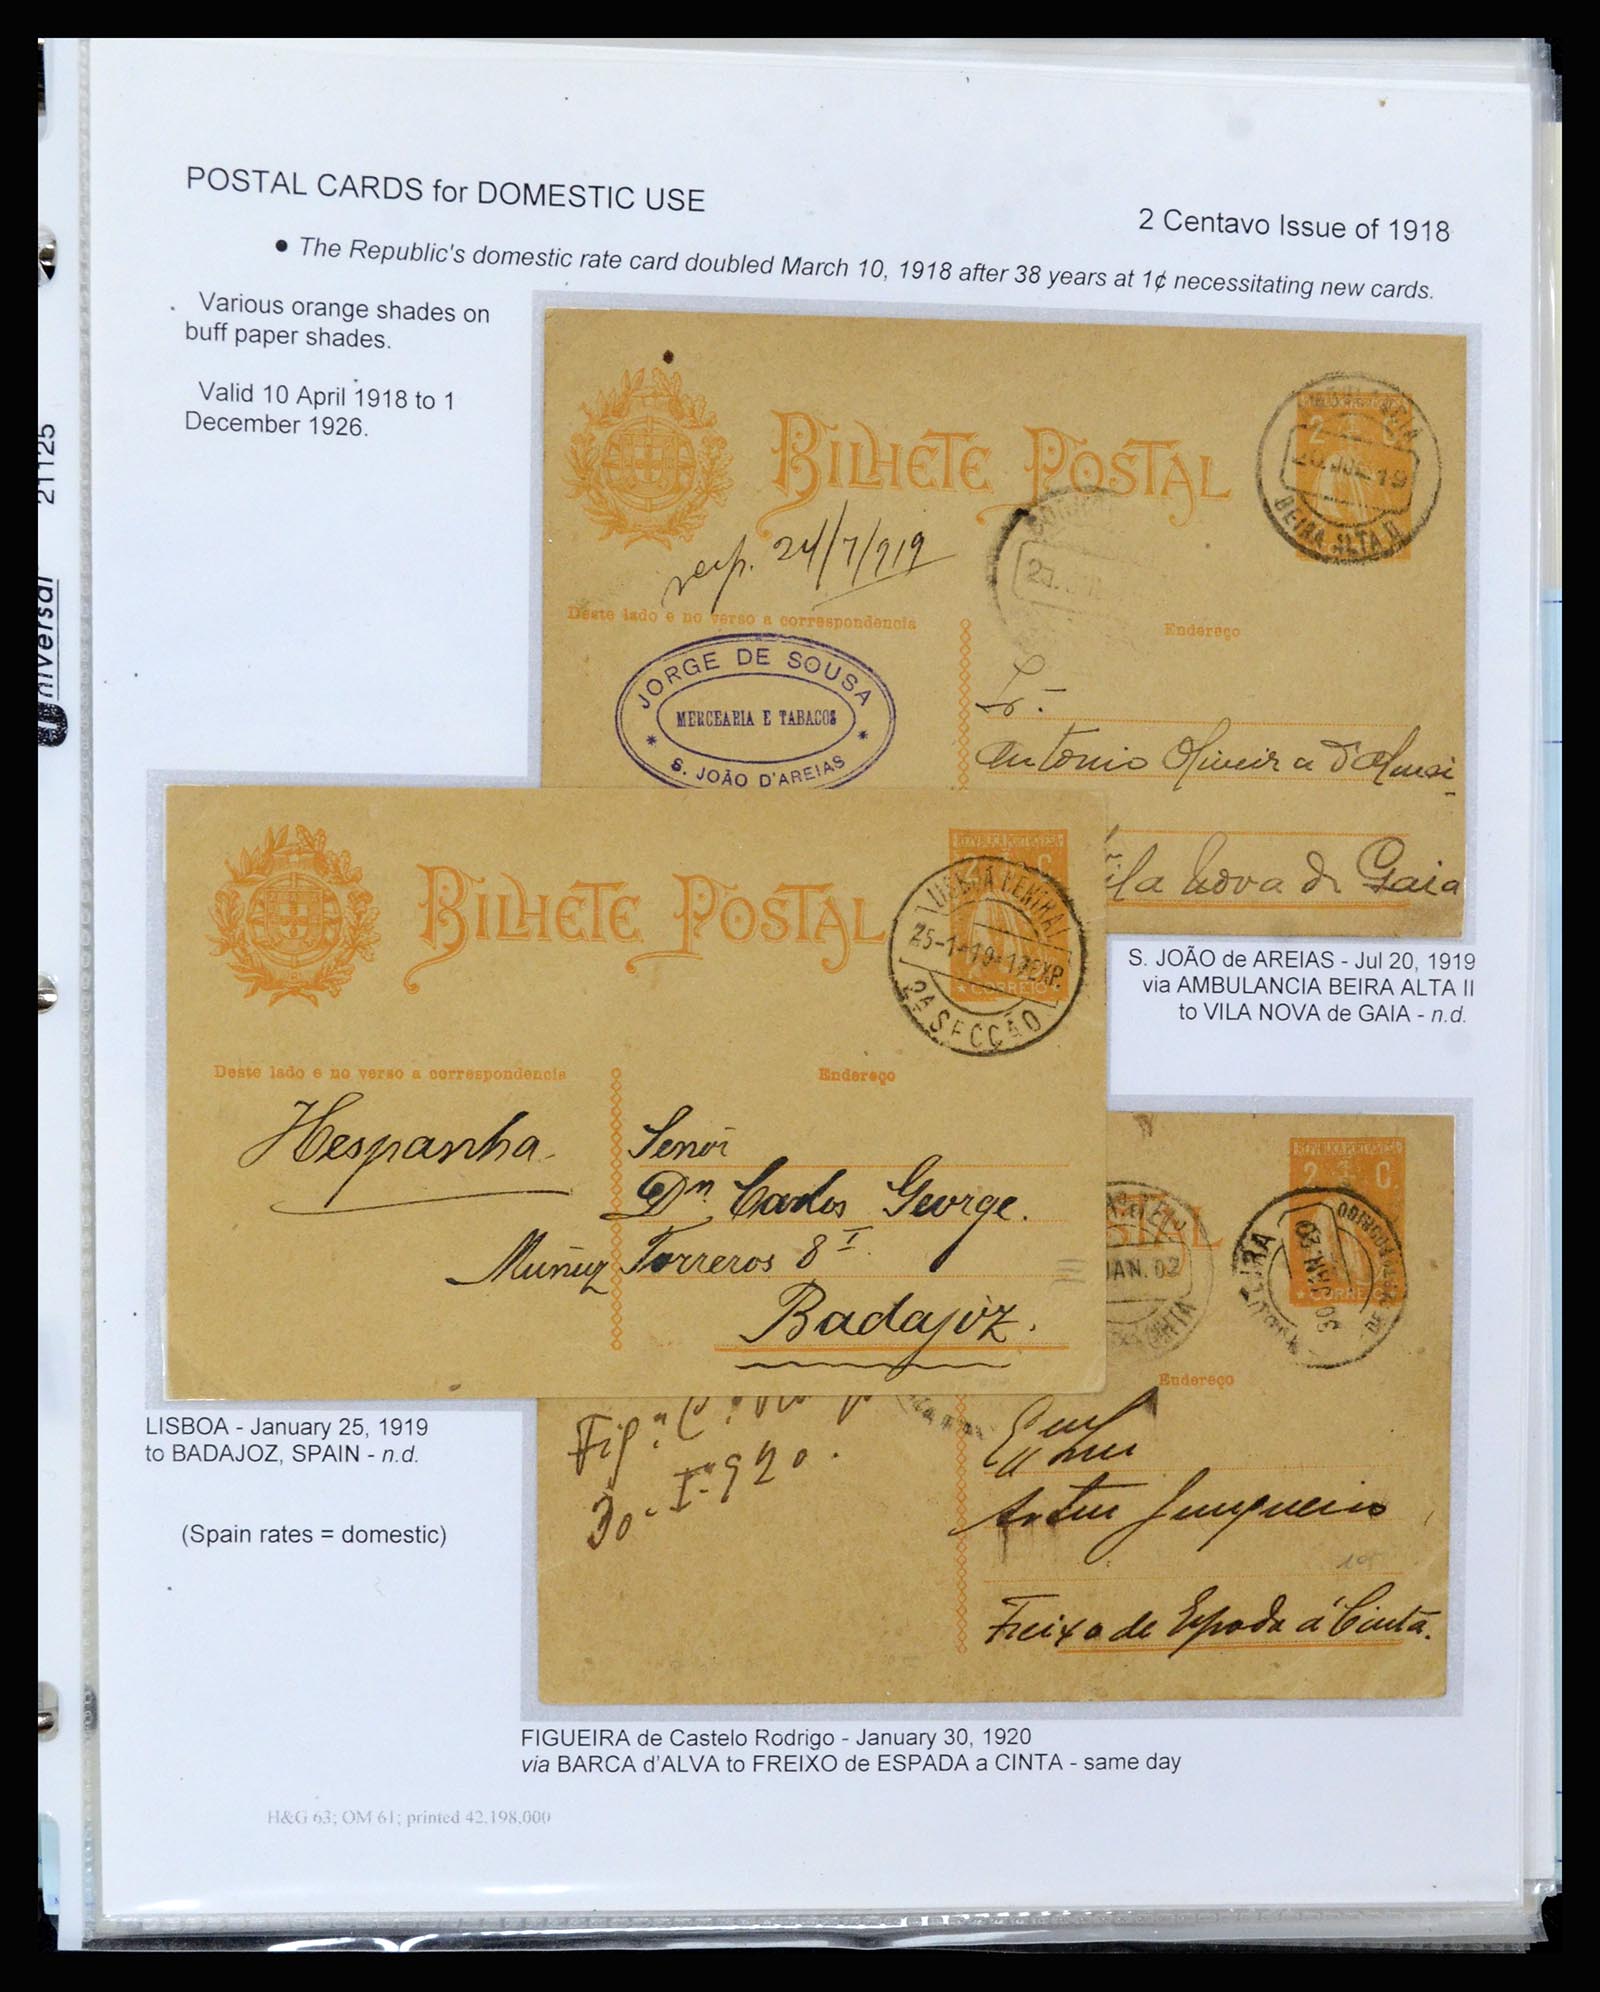 POSTAL CARDS for DOMESTIC USE
2 Centavo Issue of 1918
● The Republic's domestic rate card doubled March 10, 1918 after 38 years at 1¢ necessitating new cards.
Various orange shades on
buff paper shades.
Valid 10 April 1918 to 1
December 1926.
21125
Universal
BILHETE POSTAL
2 C.
19
BEIRA ALTA II
resp. 24/7/919
Deste lado e no verso a correspondencia
Endereço
JORGE DE SOUSA
MERCEARIA E TABACOS
* S. JOÃO D'AREIAS *
Sr.
Antonio Oliveira
Vila Nova de Gaia
S. JOÃO de AREIAS - Jul 20, 1919
via AMBULANCIA BEIRA ALTA II
to VILA NOVA de GAIA - n.d.
BILHETE POSTAL
LISBOA CENTRAL
25-1-19
2A SECÇÃO
CORREIO
Deste lado e no verso a correspondencia
Endereço
Hespanha
Senor
Dn Carlos George.
Muñoz Torreros 8
Badajoz.
LISBOA - January 25, 1919
to BADAJOZ, SPAIN - n.d.
(Spain rates = domestic)
REPUBLICA PORTUGUESA
2 C.
STAL
JAN. 02
30 JAN. 20
* CORREIO
Endereço
30-I-920.
Artur Junqueiro
Freixo de Espada á Cinta.
FIGUEIRA de Castelo Rodrigo - January 30, 1920
via BARCA d'ALVA to FREIXO de ESPADA a CINTA - same day
H&G 63; OM 61; printed 42,198,000